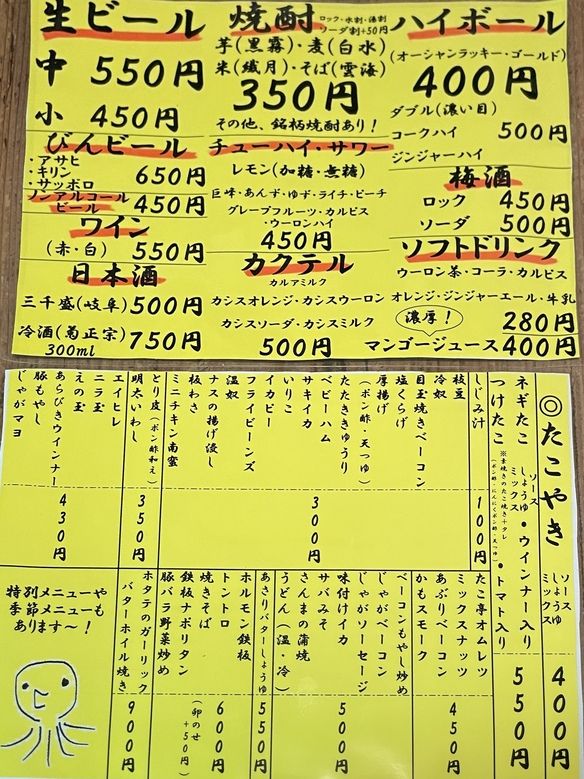 生ビール
中 550円
小 450円
びんビール
・アサヒ
・キリン
・サッポロ
650円
ノンアルコール
ビール 450円
ワイン
(赤・白) 550円
日本酒
三千盛(岐阜)500円
冷酒(菊正宗)750円
300ml
焼酎 ロック・水割・湯割
ソーダ割+50円
芋(黒霧)・麦(白水)
米(繊月)・そば(雲海)
350円
その他、銘柄焼酎あり!
チューハイ・サワー
レモン(加糖・無糖)
巨峰・あんず・ゆず・ライチ・ピーチ
グレープフルーツ・カルピス
・ウーロンハイ
450円
カクテル
カルアミルク
カシスオレンジ・カシスウーロン
カシスソーダ・カシスミルク
500円
ハイボール
(オーシャンラッキー・ゴールド)
400円
ダブル(濃い目)
コークハイ 500円
ジンジャーハイ
梅酒
ロック 450円
ソーダ 500円
ソフトドリンク
ウーロン茶・コーラ・カルピス
オレンジ・ジンジャーエール・牛乳
280円
濃厚!
マンゴージュース400円
◎たこやき
ソース
しょうゆ
ミックス
400円
ネギたこ ソース
しょうゆ
ミックス
・ウインナー入り
・トマト入り
つけたこ
550円
しじみ汁
100円
枝豆
冷奴
目玉焼きベーコン
塩くらげ
厚揚げ
(ポン酢・天つゆ)
たたききゅうり
ベビーハム
サキイカ
いりこ
イカピー
フライビーンズ
温奴
ナスの揚げ浸し
板わさ
ミニチキン南蛮
300円
とり皮(ポン酢和え)
明太いわし
350円
エイヒレ
ニラ玉
えの玉
あらびきウインナー
豚もやし
じゃがマヨ
430円
たこ亭オムレツ
ミックスナッツ
あぶりベーコン
かもスモーク
450円
ベーコンもやし炒め
じゃがベーコン
じゃがソーセージ
味付けイカ
サバみそ
さんまの蒲焼
うどん(温・冷)
500円
あさりバターしょうゆ
550円
ホルモン鉄板
トントロ
焼きそば
鉄板ナポリタン
豚バラ野菜炒め
600円
(卵のせ
+50円)
ホタテのガーリック
バターホイル焼き
900円
特別メニューや
季節メニューも
あります〜!